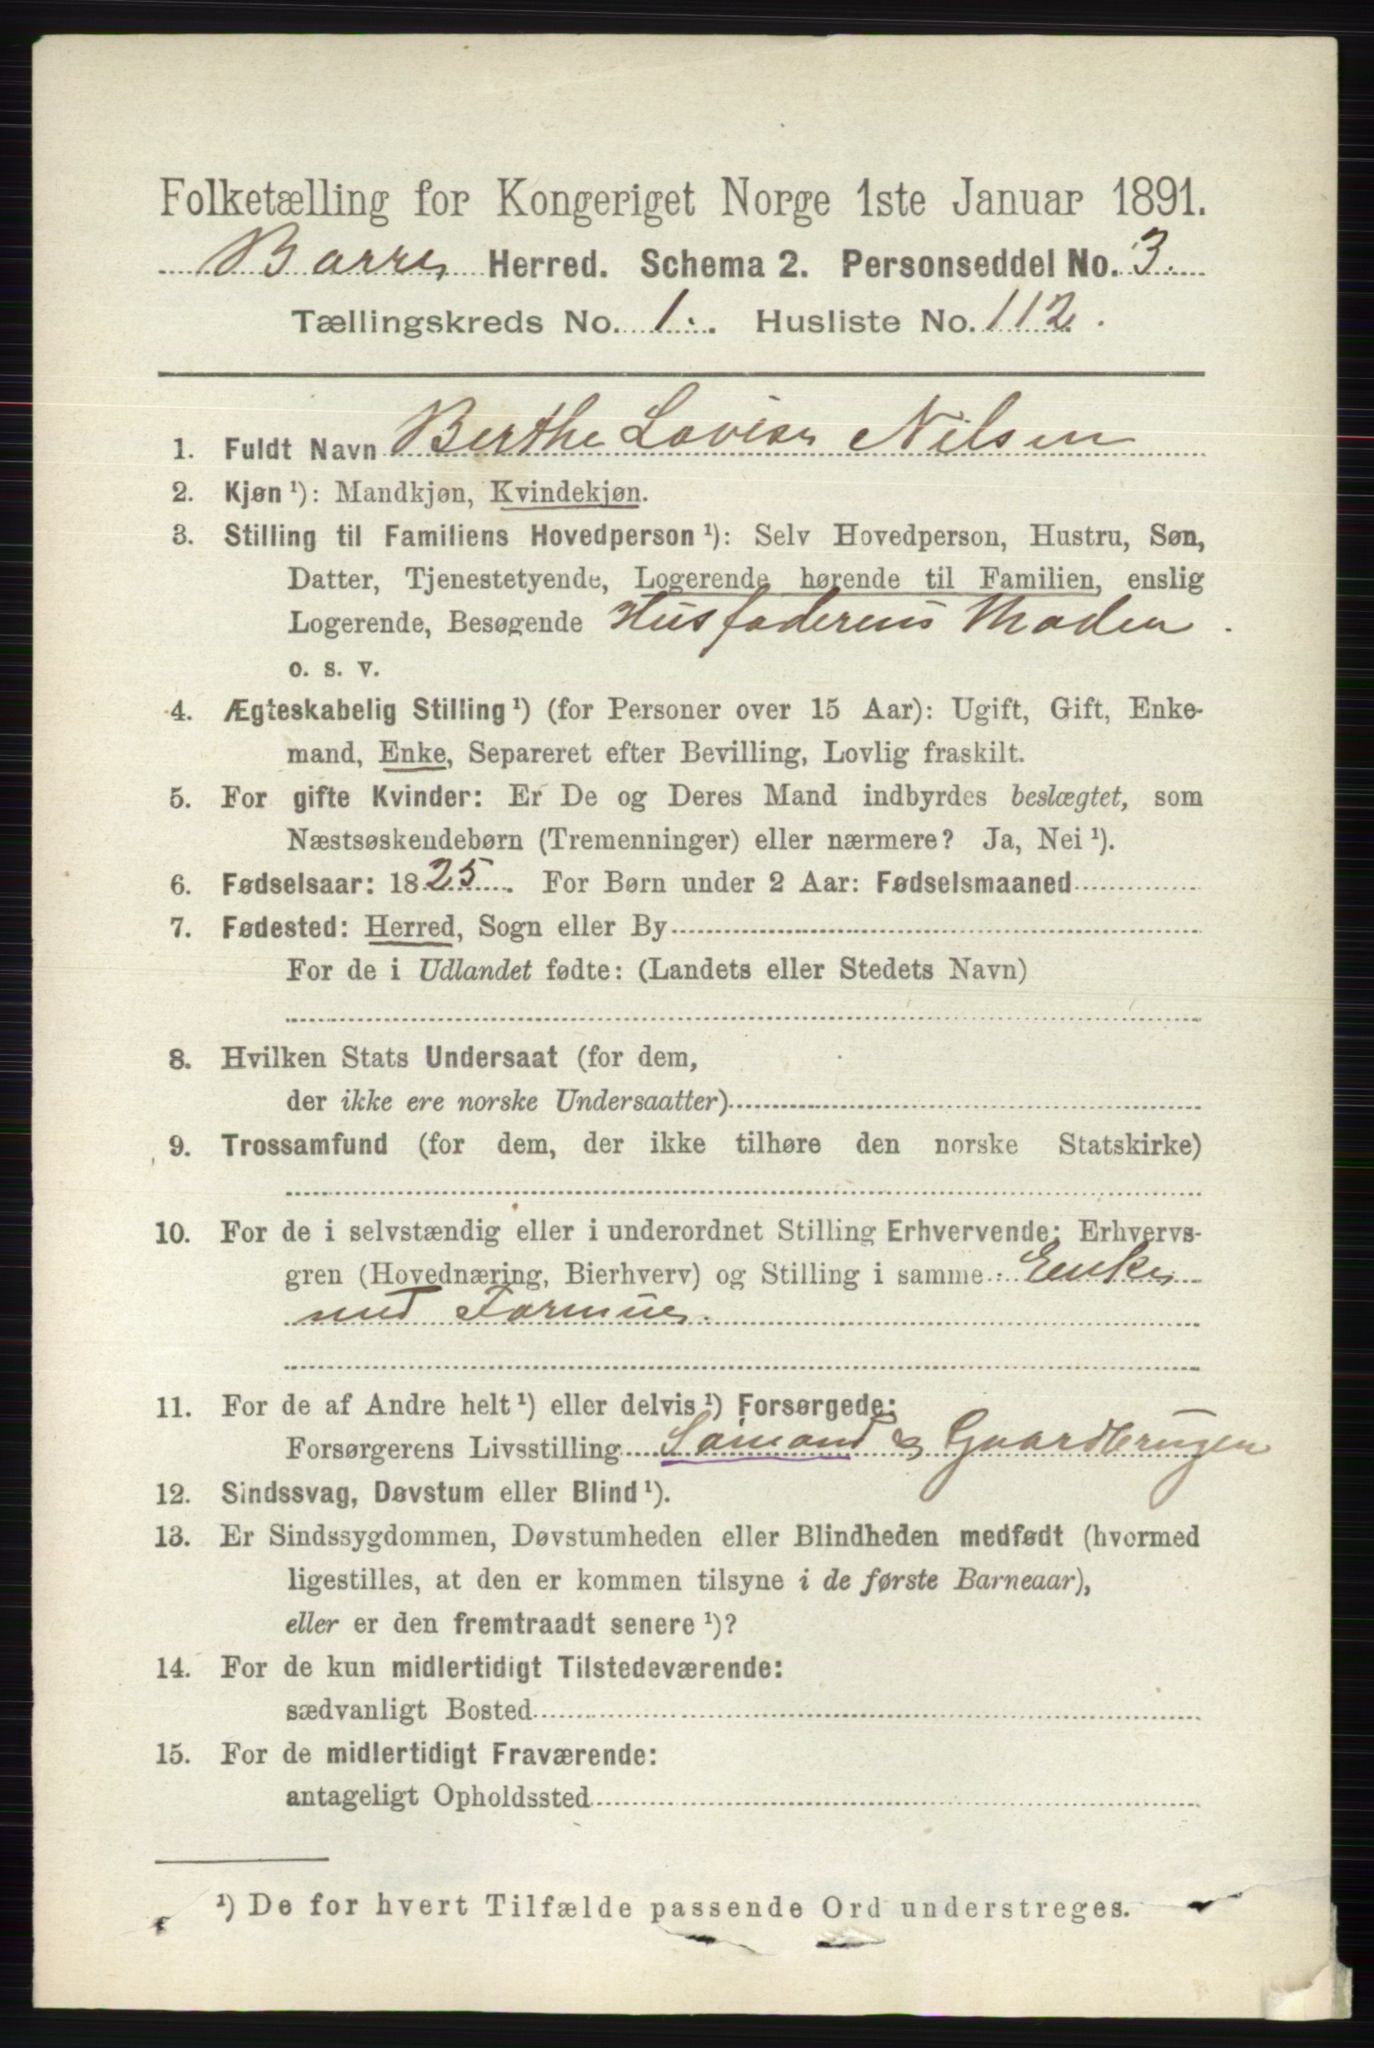 Folketælling for Kongeriget Norge 1ste Januar 1891.
Borre Herred. Schema 2. Personseddel No. 3.
Tællingskreds No. 1. Husliste No. 112.
1. Fuldt Navn Berthe Lovise Nilsen
2. Kjøn ¹): Mandkjøn, Kvindekjøn.
3. Stilling til Familiens Hovedperson ¹): Selv Hovedperson, Hustru, Søn,
Datter, Tjenestetyende, Logerende hørende til Familien, enslig
Logerende, Besøgende Husfaderens Moder.
o. s. v.
4. Ægteskabelig Stilling ¹) (for Personer over 15 Aar): Ugift, Gift, Enke-
mand, Enke, Separeret efter Bevilling, Lovlig fraskilt.
5. For gifte Kvinder: Er De og Deres Mand indbyrdes beslægtet, som
Næstsøskendebørn (Tremenninger) eller nærmere? Ja, Nei ¹).
6. Fødselsaar: 1825. For Børn under 2 Aar: Fødselsmaaned
7. Fødested: Herred, Sogn eller By
For de i Udlandet fødte: (Landets eller Stedets Navn)
8. Hvilken Stats Undersaat (for dem,
der ikke ere norske Undersaatter)
9. Trossamfund (for dem, der ikke tilhøre den norske Statskirke)
10. For de i selvstændig eller i underordnet Stilling Erhvervende: Erhvervs-
gren (Hovednæring, Bierhverv) og Stilling i samme Enke
med Formue.
11. For de af Andre helt ¹) eller delvis ¹) Forsørgede:
Forsørgerens Livsstilling Sømand & Gaardbruger
12. Sindssvag, Døvstum eller Blind ¹).
13. Er Sindssygdommen, Døvstumheden eller Blindheden medfødt (hvormed
ligestilles, at den er kommen tilsyne i de første Barneaar),
eller er den fremtraadt senere ¹)?
14. For de kun midlertidigt Tilstedeværende:
sædvanligt Bosted
15. For de midlertidigt Fraværende:
antageligt Opholdssted
¹) De for hvert Tilfælde passende Ord understreges.